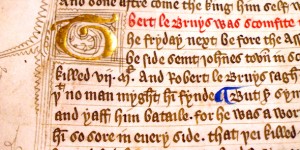 And done after come the king him self w
bert le Bruys was scomfite
he fryday next before the a
he side seint Johnes town in sc
killed vij. Ml. And Robert le Bruys sagh
yt no man myght hi fynde But sr sym
and yaff him bataile. for he was a wor
hi so sore in every side. that yei killed